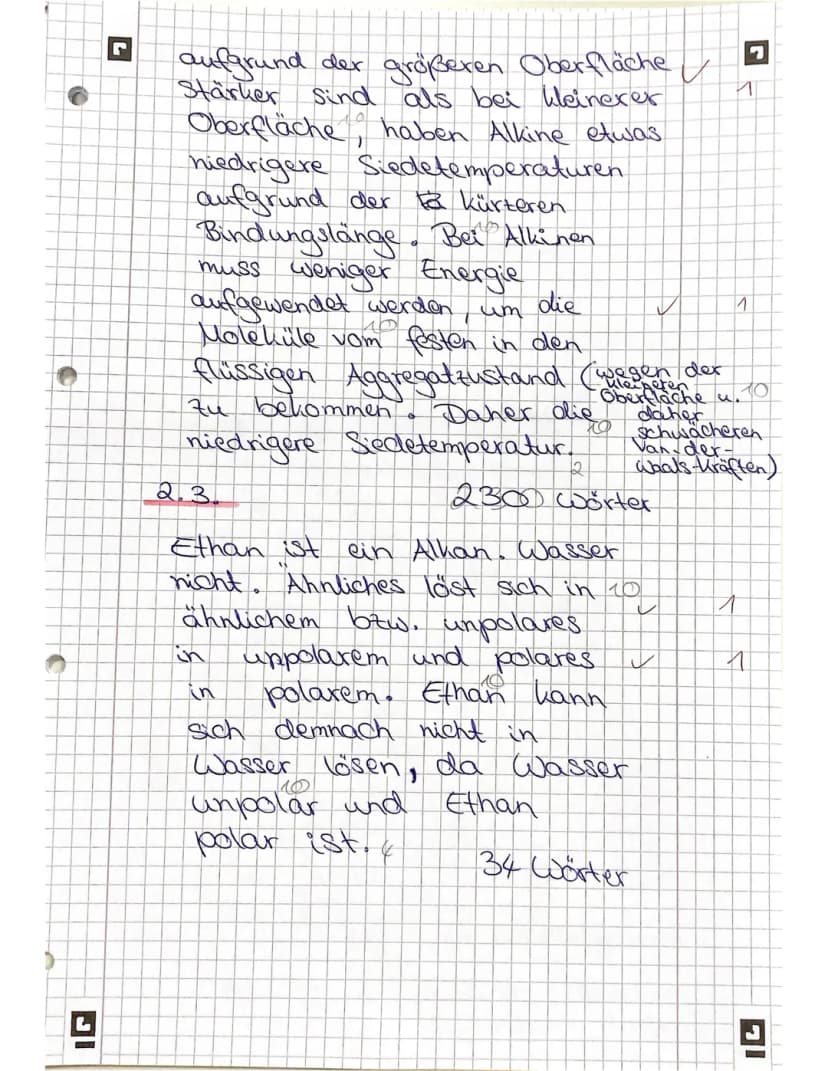 aufgrund der größeren Oberfläche ✓
Stärker sind als bei kleinerer 1
Oberfläche, haben Alkine etwas
10
niedrigere Siedetemperaturen
aufgrund der kürteren
Bindungslänge. Bei Alkinen
10
muss weniger Energie
aufgewendet werden, um die ✓ 1
Moleküle vom festen in den
10
flüssigen Aggregatzustand (wegen der
kleineren
Oberfläche u. 10
zu bekommen. Daher die daher
10
schwächeren
niedrigere Siedetemperatur. Van-der-
2
Waals-Kräften)
2.3. 2300 Wörter
Ethan ist ein Alkan. Wasser
nicht. "Ähnliches löst sich in 10 ✓ 1
ähnlichem bzw. unpolares
in unpolarem und polares ✓ 1
in polarem. Ethan kann
10
sich demnach nicht in
Wasser lösen, da Wasser
unpolar und Ethan
10
polar ist. 4
34 Wörter